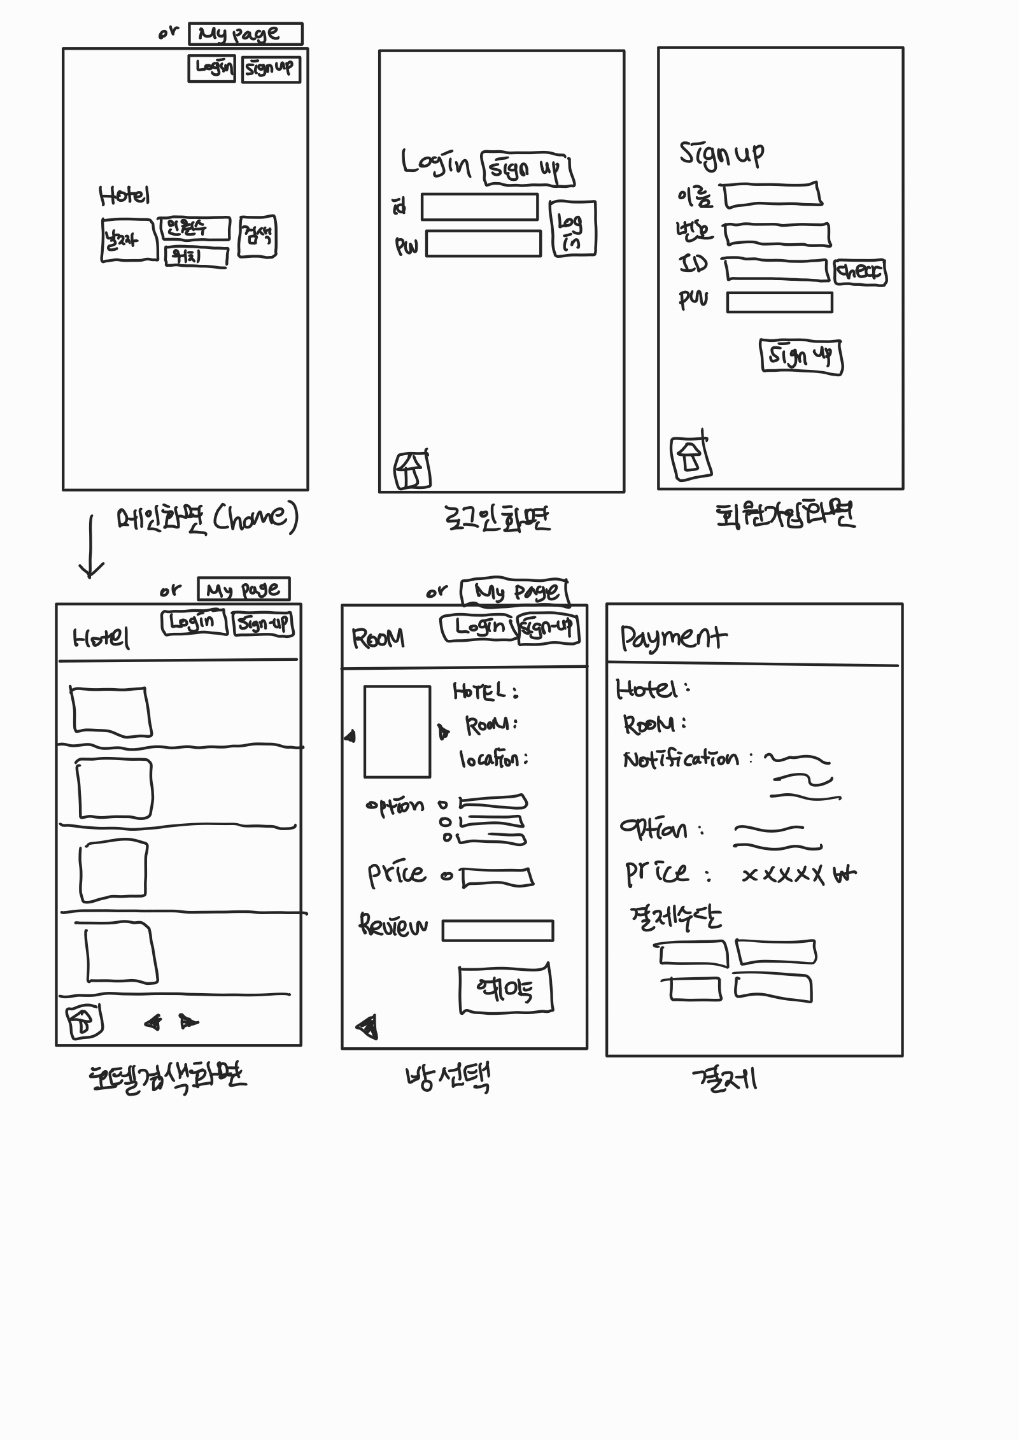 or My page
Login Sign up
Hotel
날짜 인원수 검색
위치
메인화면 (home)
Login Sign up
id
PW
Log in
로그인화면
Sign up
이름
번호
ID check
PW
Sign up
회원가입화면
or My page
Login Sign-up
Hotel
호텔검색화면
or My page
Login Sign-up
ROOM
HOTEL :
ROOM :
location :
option
price
Review
예약
방 선택
Payment
Hotel :
ROOM :
Notification :
option :
price : xxxxx ₩
결제수단
결제